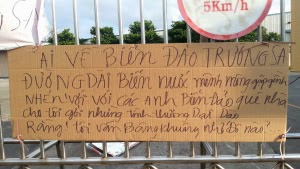 5Km/h
SA
ÁI VỀ BIỂN ĐẢO TRƯỜNG SA
ĐƯỜNG DÀI BIỂN NƯỚC MÊNH MÔNG
NHẮN! VỚI VỚI CÁC ANH BIỂN ĐẢO QUÊ NHÀ
Cho tôi gởi những Tình Thương Dạt Dào
Rằng! tôi vẫn Bâng khuâng nhớ